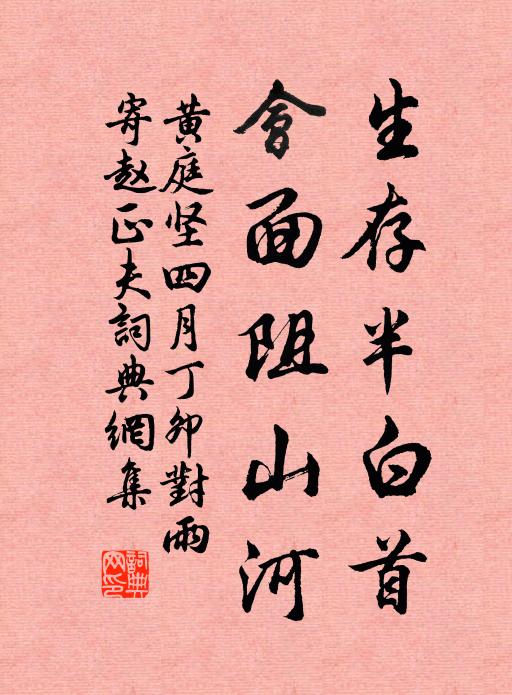 生存半白首
會面阻山河
黄庭坚四月丁卯對雨
寄赵正夫詞典網集
詞典
网印